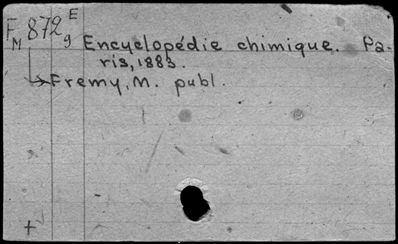 F 872 E
M 9 Encyclopédie chimique. Pa-
ris, 1883.
Fremy, M. publ.
+